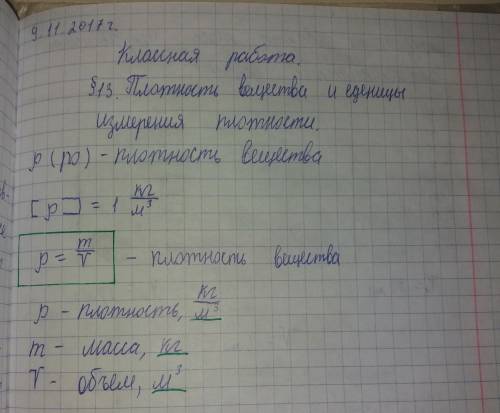 9.11.2017г.
Классная работа.
§13. Плотность вещества и еденицы
измерения плотности.
р (ро) - плотность вещества
[р] = 1 кг/м³
р = m/V - плотность вещества
р - плотность, кг/м³
m - масса, кг
V - объем, м³